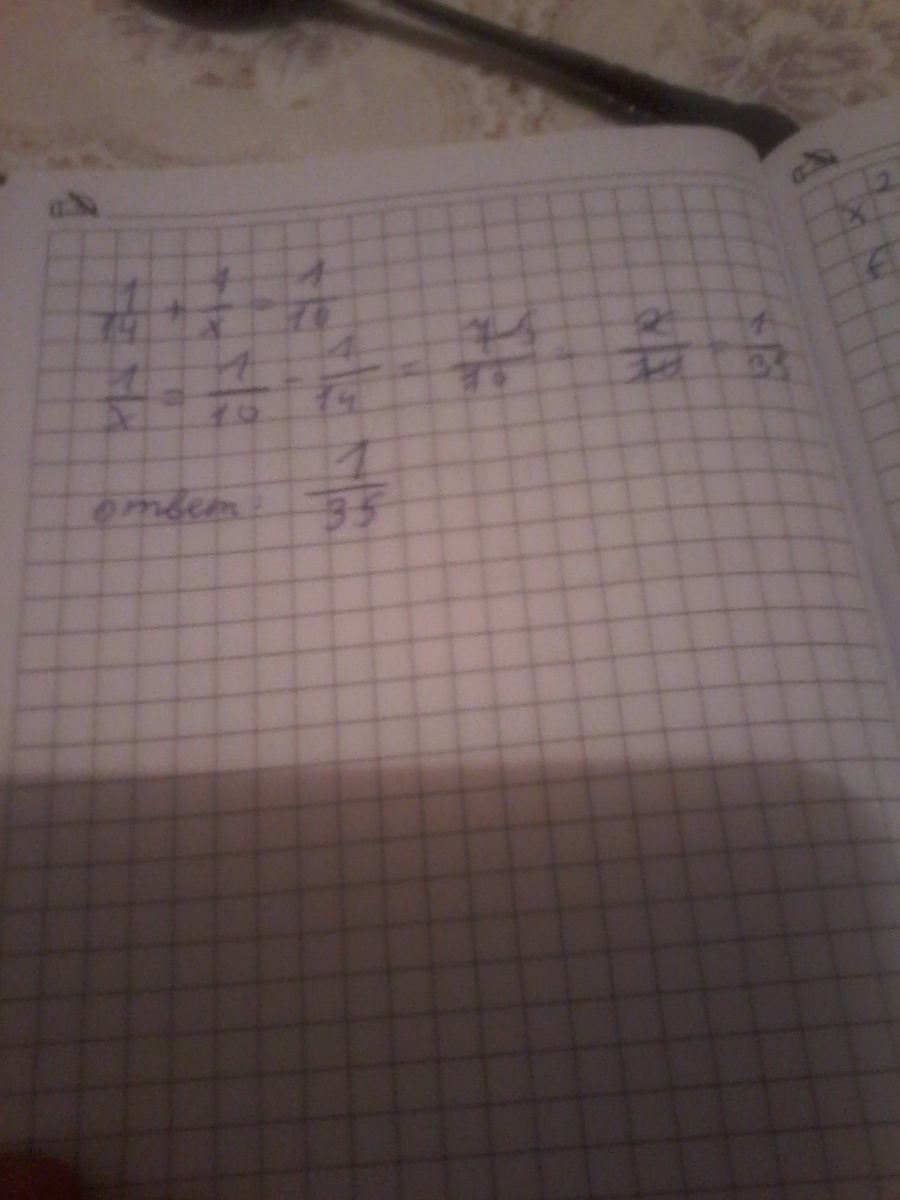 1/14 + 1/x = 1/10
1/x = 1/10 - 1/14 = 7-5/70 = 2/70 = 1/35
ответ: 1/35
x 2